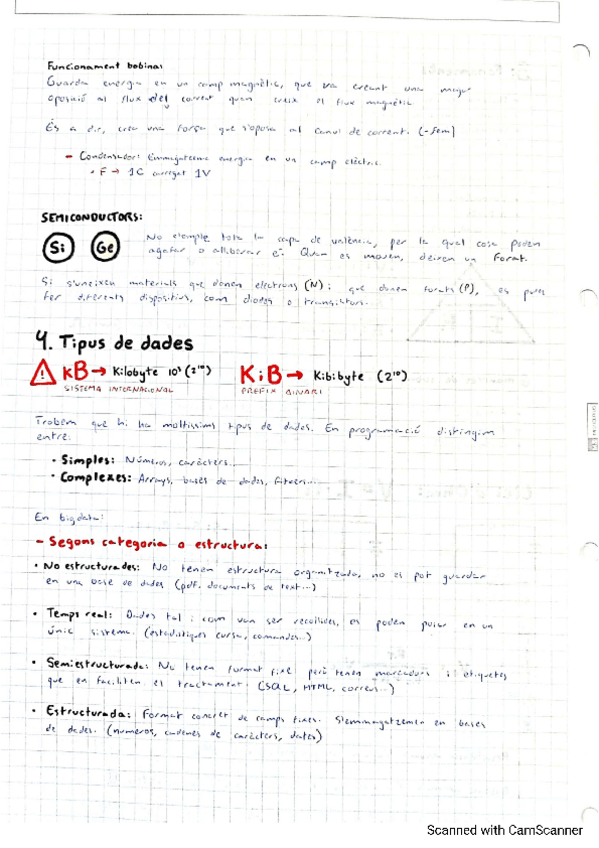 Funcionament bobina:
Guarda energia en un camp magnètic, que va creant una major
oposició al flux del corrent quan creix el flux magnètic
És a dir, crea una força que s'oposa al canvi de corrent. (-fem)
- Condensador: Emmagatzema energia en un camp elèctric.
• F → 1C arriget 1V
SEMICONDUCTORS:
Si Ge
No omple tota la capa de valència, per la qual cosa poden
agafar o alliberar e-. Quan es mouen, deixen un forat.
Si s'uneixen materials que donen electrons (N) i que donen forats (P), es pures
fer diferents dispositius, com díodes o transistors.
4. Tipus de dades
kB → Kilobyte 10³ (2¹⁰) KiB → Kibibyte (2¹⁰)
SISTEMA INTERNACIONAL PREFIX BINARI
Trobem que hi ha moltíssims tipus de dades. En programació distingim
entre:
• Simples: Números, caràcters...
• Complexes: Arrays, bases de dades, fitxers...
En bigdata:
- Segons categoria o estructura:
• No estructurades: No tenen estructura organitzada, no es pot guardar
en una base de dades (pdf, documents de text...)
• Temps real: Dades tal i com van ser recollides, es poden pujar en un
únic sistema. (estadístiques cursa, comandes..)
• Semiestructurada: No tenen format fixe però tenen marcadors i etiquetes
que en faciliten el tractament. (SQL, HTML, correus...)
• Estructurada: Format concret de camps fixes. S'emmagatzemen en bases
de dades. (números, cadenes de caràcters, dates)
Scanned with CamScanner